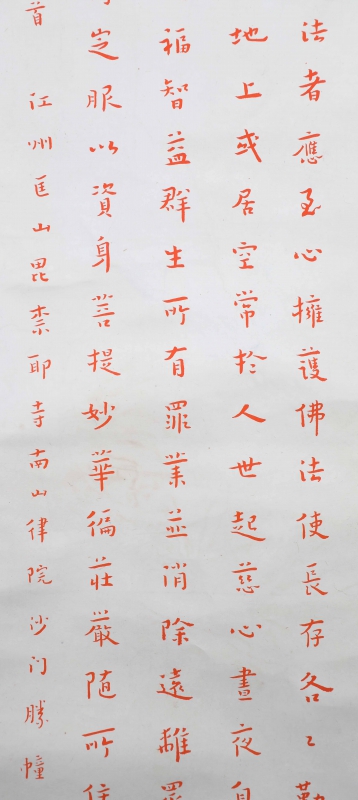 法者應至心擁護佛法使長存各〻勤
地上或居空常於人世起慈心晝夜自
福智益群生所有罪業並消除遠離眾
定服以資身菩提妙華徧莊嚴隨所住
首 江州匡山毘柰耶寺南山律院沙门勝幢